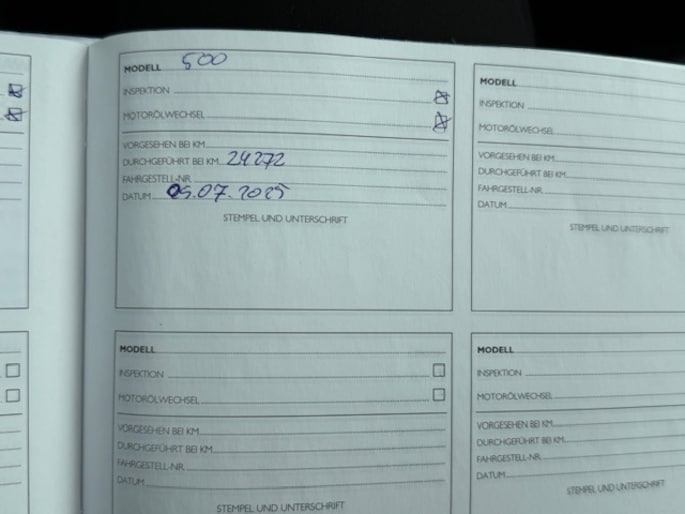 MODELL 500
INSPEKTION
MOTORÖLWECHSEL
VORGESEHEN BEI KM
DURCHGEFÜHRT BEI KM 24272
FAHRGESTELL-NR.
DATUM 05.07.2025
STEMPEL UND UNTERSCHRIFT
MODELL
INSPEKTION
MOTORÖLWECHSEL
VORGESEHEN BEI KM
DURCHGEFÜHRT BEI KM
FAHRGESTELL-NR.
DATUM
STEMPEL UND UNTERSCHRIFT
MODELL
INSPEKTION
MOTORÖLWECHSEL
VORGESEHEN BEI KM
DURCHGEFÜHRT BEI KM
FAHRGESTELL-NR.
DATUM
STEMPEL UND UNTERSCHRIFT
MODELL
INSPEKTION
MOTORÖLWECHSEL
VORGESEHEN BEI KM
DURCHGEFÜHRT BEI KM
FAHRGESTELL-NR.
DATUM
STEMPEL UND UNTERSCHRIFT